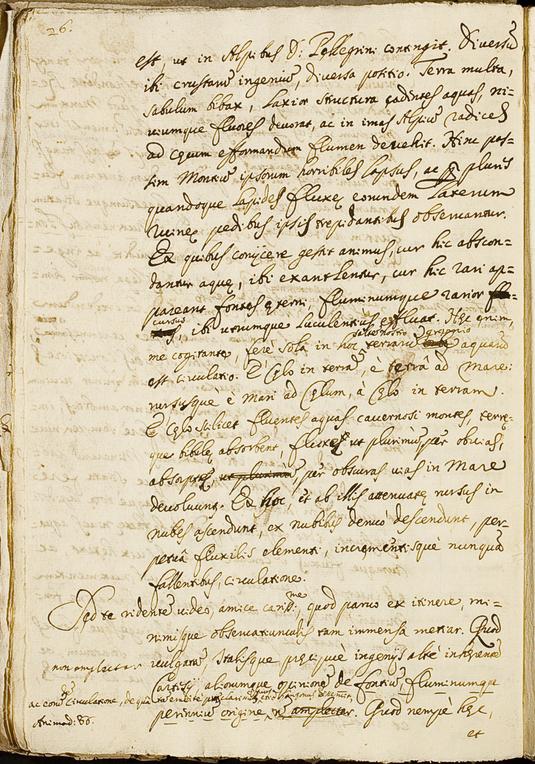 26.
est, ut in Alpibus D: Pellegrini contingit. Diversus
ibi crustarum ingenium, diversa positio. Terra multa,
sabulum bibax, laxior structura cadentes aquas, ni-
viumque fluores devorat, ac in imas Alpium radices
ad equum efformandum flumen devehit. Hinc pas-
sim Montium ipsorum horribiles lapsus, ac pluries
quandoque lapides fluxere eorundem laterum
ruinę pedibus ipsis trepidantibus observantur.
Ex quibus conijcere gestit animus, cur hic abscon-
dantur aquę, ibi exantlentur, cur hic rari ap-
pareant fontes perenni fluminumque rarior
cursus, ibi utrumque luculentius effluat. Hęc enim,
me cogitante, ferè sola in hoc terrarum aquarum
est circulatio. E Cęlo in terram, è terrâ ad Mare:
rursusque è Mari ad Cęlum, à Cęlo in terram.
E Cęlo scilicet fluentes aquas cavernosi montes, terrę-
que bibulę absorbent, ut plurimum per obvias,
absorptę, ut plurimum, per obscuras vias in Mare
devolvunt. Ex hoc, et ab illis attenuatę rursus in
nubes ascendunt, ex nubibus denuò descendunt, per-
petuâ fluxilis elementi, incrementisque nunquam
fallentibus, circulatione.
Sed te ridente video, amice carissme, quod parvo ex itinere, mi-
nimisque observatiunculis tam immensa metiar. Quod
non amplectar vulgatam, Italisque ingenijs altè
Cartesij aliorumque opinionem de fontium, fluminumque
ac conti circulatione, de qua
Animad: 80.
perennium origine, non amplectar. Quod nempè hęc,
et